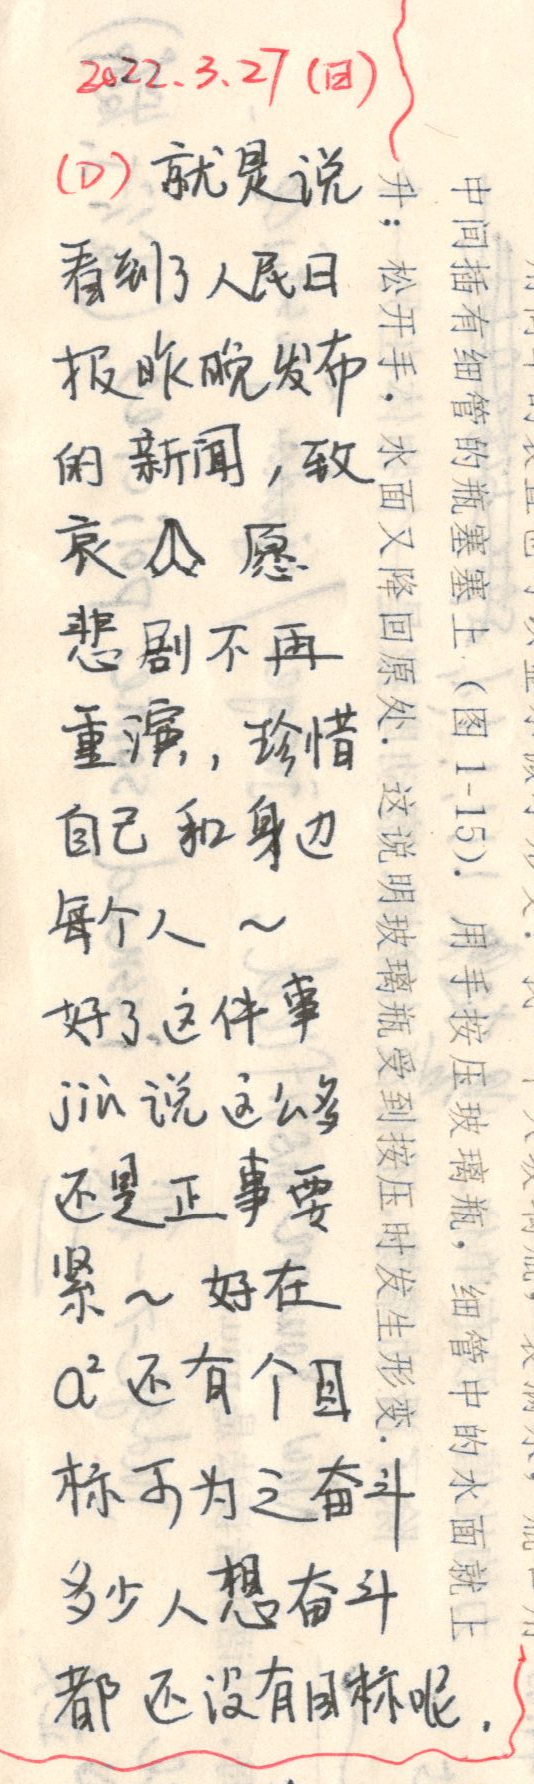 2022.3.27(日)
(D) 就是说
看到了人民日
报昨晚发布
的新闻，致
哀🙏 愿
悲剧不再
重演，珍惜
自己和身边
每个人～
好了这件事
jiù说这么多
还是正事要
紧～好在
a²还有个目
标可为之奋斗
多少人想奋斗
都还没有目标呢.
中间插有细管的瓶塞塞上（图1-15）. 用手按压玻璃瓶，细管中的水面就上
升；松开手，水面又降回原处. 这说明玻璃瓶受到按压时发生形变.